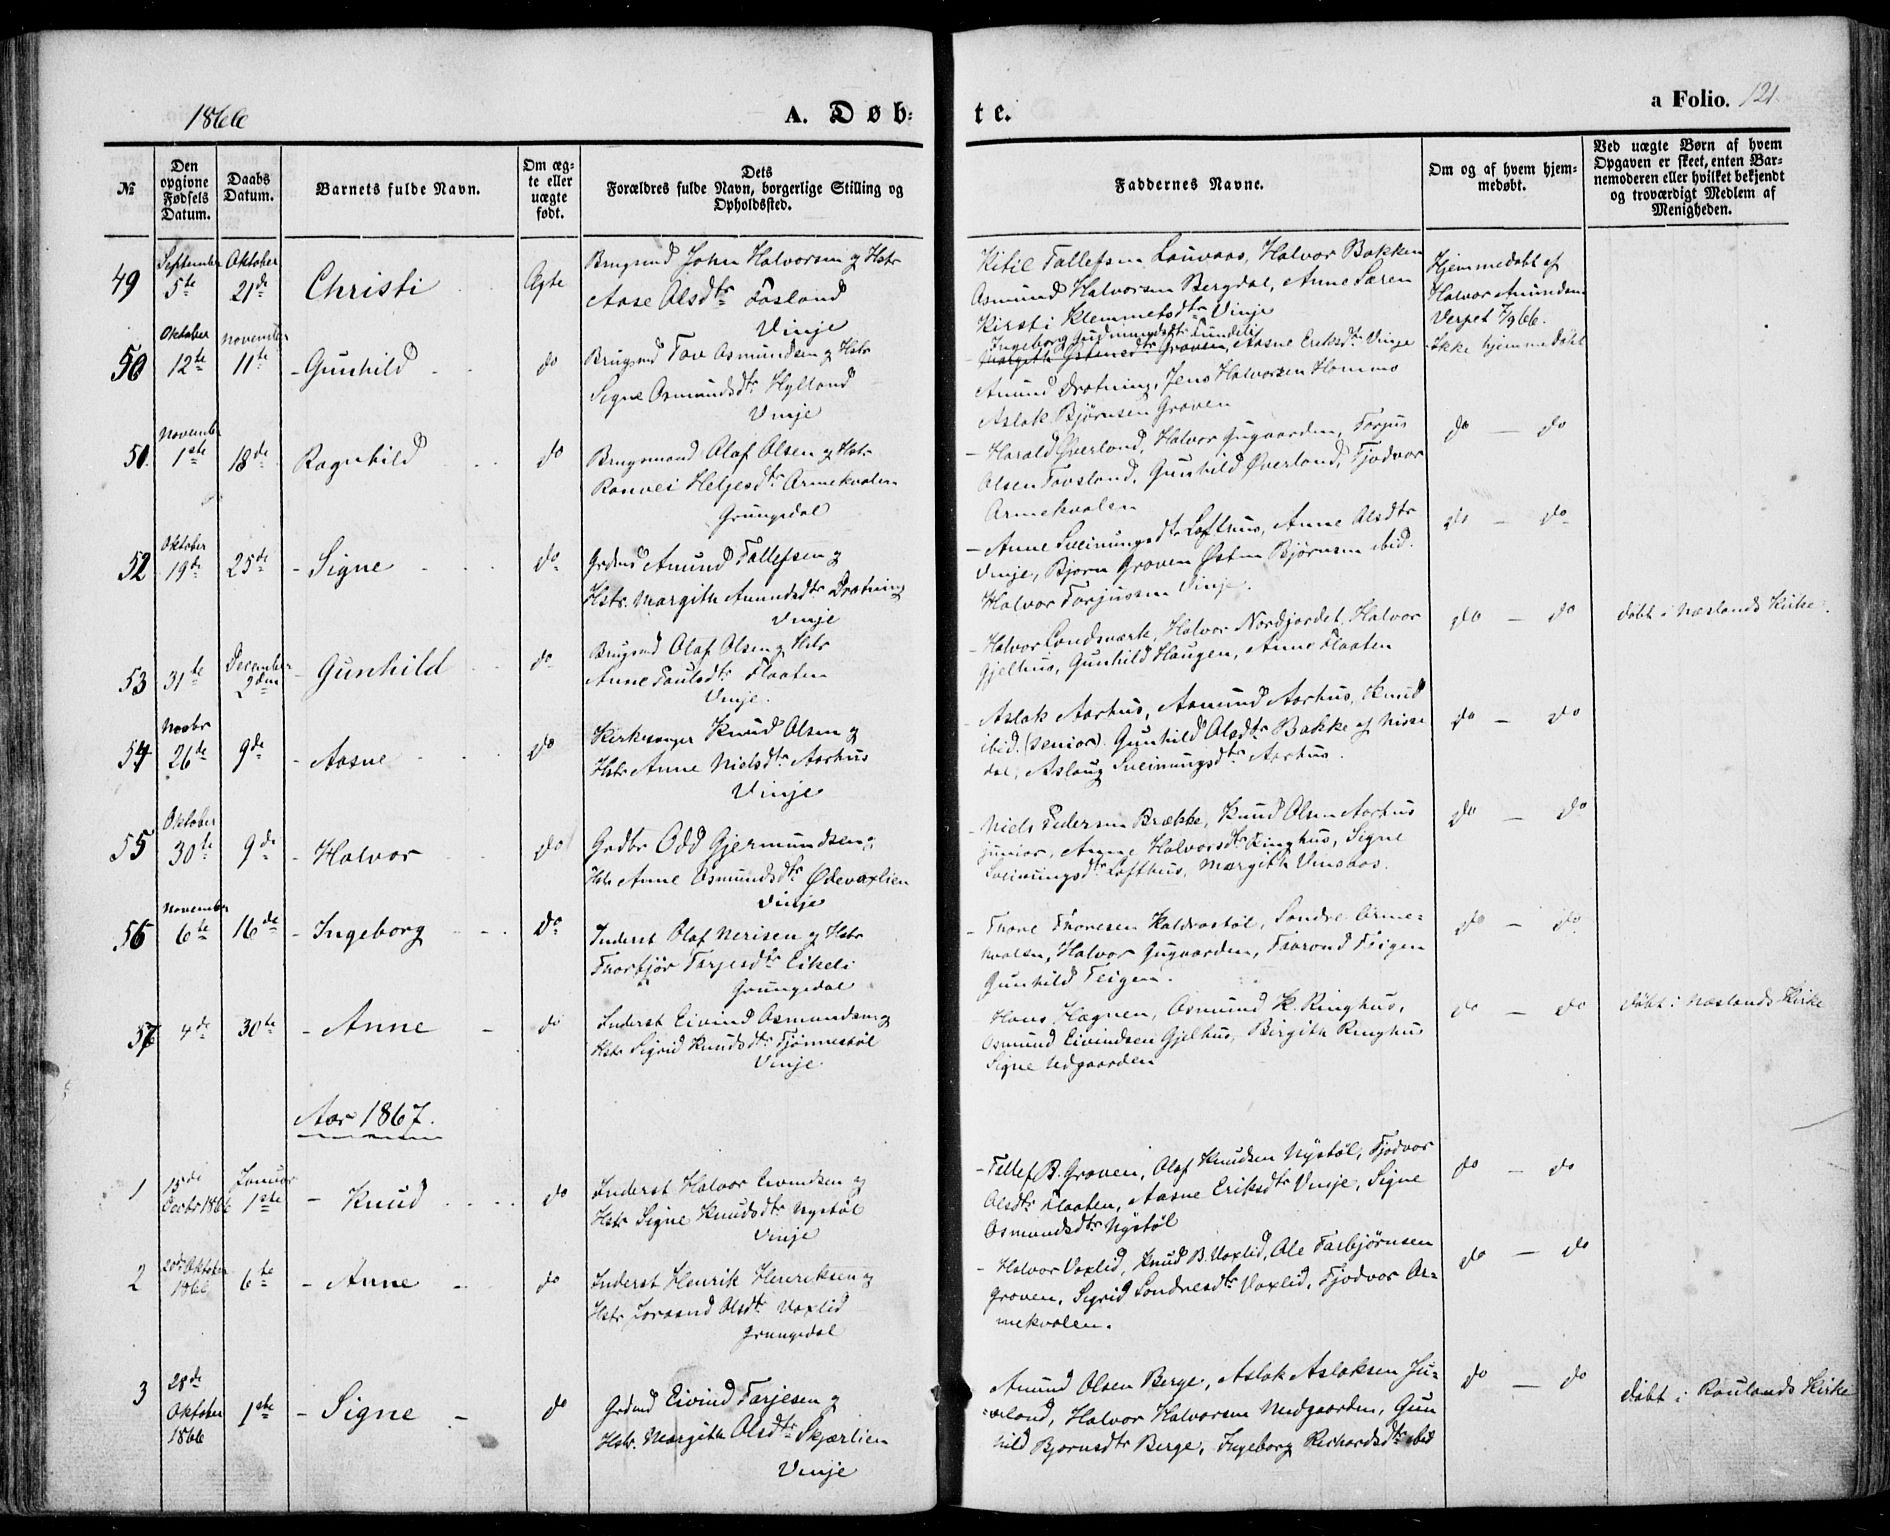 1866
A. Døb-
te.
a Folio. 121.
№
Den opgivne Fødsels Datum.
Daabs Datum.
Barnets fulde Navn.
Om æg-
te eller
uægte
født.
Dets
Forældres fulde Navn, borgerlige Stilling og
Opholdssted.
Faddernes Navne.
Om og af hvem hjem-
medøbt.
Ved uægte Børn af hvem
Opgaven er skeet, enten Bar-
nemoderen eller hvilket bekjendt
og troværdigt Medlem af
Menigheden.
49
September 5te
Oktober 21de
Christi
Ægte
Brugmd John Halvorsen og Hstr
Aase Olsdtr Fosland
Vinje
Kitil Tallefsen Lauvaas, Halvor Bakken
Osmund Halvorsen Bergdal, Anne Søren
Kirsti Klemmetsdtr Vinje
Hjemmedøbt af
Halvor Amundsen
Verpet 7/9 66.
50
Oktober 12te
November 11te
Gunhild
do
Brugmd Tov Osmundsen og Hstr
Signe Osmundsdtr Hylland
Vinje
Ingeborg
Margith Østensdtr Groven, Aasne Eriksdtr Vinje
Amund Drotning, Jens Halvorsen Hommo
Aslak Bjørnsen Groven
Ikke hjemmedøbt
51.
November 1ste
18de
Ragnhild
do
Brugmand Olaf Olsen og Hstr
Ranvei Heljesdtr Armekvalen
Grungedal
Harald Øverland, Halvor Gugaarden, Torjus
Olsen Tovsland, Gunhild Øverland, Tjodvor
Armekvalen
do — do
52
Oktober 19de
25de
Signe
do
Grdmd Amund Tallefsen og
Hstr. Margith Amundsdtr Drotning
Vinje
Anne Sveinungsdtr Lofthus, Anne Olsdtr
Vinje, Bjørn Groven Østen Bjørnsen ibid.
Halvor Torjussen Vinje.
do — do
53
31te
December 2den
Gunhild
do
Brugmd Olaf Olsen og Hstr
Anne Paulsdtr Flaaten
Vinje.
Halvor Landsværk, Halvor Nordjordet, Halvor
Gjelhus, Gunhild Haugen, Anne Flaaten
do — do
døbt i Næslands Kirke.
54
Novbr 26de
9de
Aasne
do
Kirkesanger Knud Olsen og
Hstr Anne Nielsdtr Aarhus
Vinje
Aslak Aarhus, Asmund Aarhus, Knud
ibid. (senior). Gunhild Olsdtr Bakke af Nisse
dal, Aslaug Sveinungsdtr Aarhus.
do — do
55
Oktober 30te
9de
Halvor
do
Grdbr Odd Gjermundsen og
Hstr Anne Osmundsdtr Ødevaxlien
Vinje
Niels Pedersen Brække, Knud Olsen Aarhus
junior, Anne Halvorsdtr Ringhus, Signe
Sveinungsdtr Lofthus, Margith Vinsaas.
do — do
56
November 6te
16de
Ingeborg
do
Inderst Olaf Nerisen og Hstr
Thorbjør Tarjesdtr Eikeli
Grungedal
Thore Thoresen Kaldrastøl, Sondre Arme-
kvalen, Halvor Gugaarden, Tharond Teigen
Gunhild Teigen.
do — do
57
4de
30te
Anne
do
Inderst Eivind Osmundsen og
Hstr Sigrid Knudsdtr Tjønnestøl
Vinje
Hans Hægnen, Osmund K. Ringhus,
Osmund Eivindsen Gjelhus, Bergith Ringhus
Signe Nedgaarden
do — do
døbt i Næslands Kirke
Aar 1867.
1
15de Decbr 1866
Januar 1ste
Knud
do
Inderst Halvor Eivindsen og
Hstr Signe Knudsdtr Nystøl
Vinje
Tallef B. Groven, Olaf Knudsen Nystøl, Tjodvor
Olsdtr Flaaten, Aasne Eriksdtr Vinje, Signe
Osmundsdtr Nystøl
do — do
2
Oktober 1866
6te
Anne
do
Inderst Henrik Henriksen og
Hstr Joraand Olsdtr Vaxlid
Grungedal
Halvor Vaxlid, Knud B. Vaxlid, Ole Torbjørnsen
Groven, Sigrid Sondresdtr Vaxlid, Tjodvor Ar-
mekvalen.
do — do
3
28de Oktober 1866
1ste
Signe
do
Grdmd Eivind Tarjesen og
Hstr. Margith Olsdtr Skjærlien
Vinje
Amund Olsen Berge, Aslak Aslaksen Ju-
veland, Halvor Halvorsen Nedgaarden, Gun
hild Bjørnsdtr Berge, Ingeborg Richardsdtr ibid
do — do
døbt i Raulands Kirke